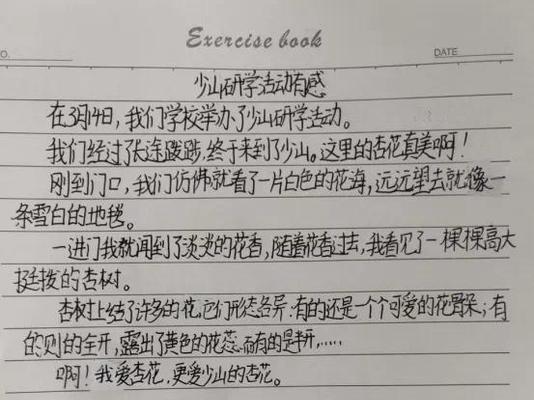 Exercise book
NO.
DATE
少山研学活动有感
在3月14日，我们学校举办了少山研学活动。
我们经过了长途跋涉，终于来到了少山。这里的杏花真美啊！
刚到门口，我们仿佛就看了一片白色的花海，远远望去就像一
条雪白的地毯。
一进门我就闻到了淡淡的花香，随着花香过去，我看见了一棵棵高大
挺拨的杏树。
杏树上结了许多的花，它们形态各异：有的还是一个个可爱的花骨朵；有
的则的全开，露出了黄色的花蕊；而有的是半开，……
啊！我爱杏花，更爱少山的杏花。